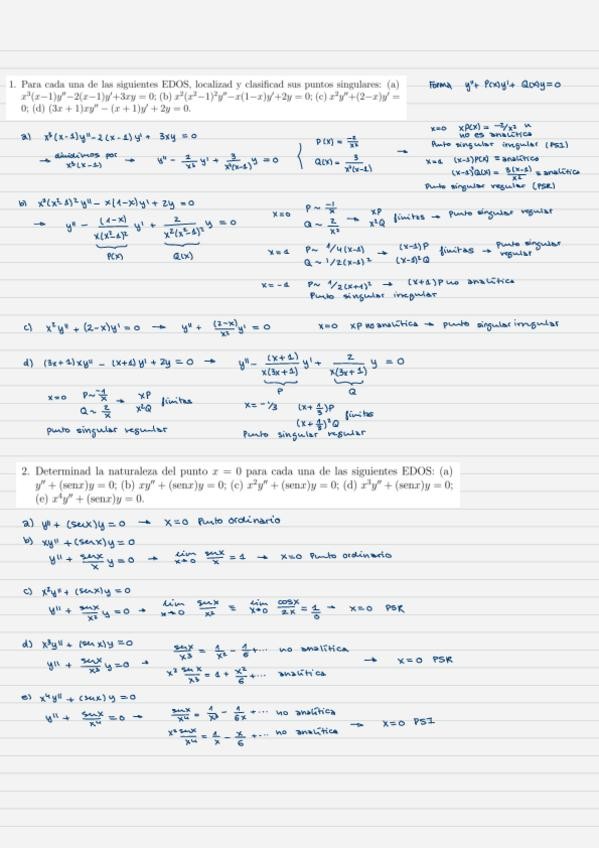 1. Para cada una de las siguientes EDOS, localizad y clasificad sus puntos singulares: (a)
x³(x−1)y″−2(x−1)y′+3xy = 0; (b) x²(x²−1)²y″−x(1−x)y′+2y = 0; (c) x²y″+(2−x)y′ =
0; (d) (3x + 1)xy″ − (x + 1)y′ + 2y = 0.
Forma y″ + P(x)y′ + Q(x)y = 0
a) x³(x−1)y″ − 2(x−1)y′ + 3xy = 0
→ dividimos por x³(x−1) → y″ − 2/x³ y′ + 3/x²(x−1) y = 0
P(x) = −2/x³
Q(x) = 3/x²(x−1)
→ x=0 xP(x) = −2/x²
no es analítica
Punto singular irregular (PSI)
x=1 (x−1)P(x) = analítica
(x−1)²Q(x) = 3(x−1)/x² = analítica
Punto singular regular (PSR)
b) x²(x²−1)²y″ − x(1−x)y′ + 2y = 0
→ y″ − (1−x)/x(x²−1)² y′ + 2/x²(x²−1)² y = 0
P(x) Q(x)
x=0 P ~ −1/x Q ~ 2/x² → xP x²Q finitas → Punto singular regular
x=1 P ~ 1/4(x−1) Q ~ 1/2(x−1)² → (x−1)P (x−1)²Q finitas → Punto singular regular
x=−1 P ~ 1/2(x+1)² → (x+1)P no analítica
Punto singular irregular
c) x²y″ + (2−x)y′ = 0 → y″ + (2−x)/x² y′ = 0 x=0 xP no analítica → punto singular irregular
d) (3x+1)xy″ − (x+1)y′ + 2y = 0 → y″ − (x+1)/x(3x+1) y′ + 2/x(3x+1) y = 0
P Q
x=0 P ~ −1/x Q ~ 2/x → xP x²Q finitas
punto singular regular
x=−1/3 (x+1/3)P (x+1/3)²Q finitas
Punto singular regular
2. Determinad la naturaleza del punto x = 0 para cada una de las siguientes EDOS: (a)
y″ + (senx)y = 0; (b) xy″ + (senx)y = 0; (c) x²y″ + (senx)y = 0; (d) x³y″ + (senx)y = 0;
(e) x⁴y″ + (senx)y = 0.
a) y″ + (senx)y = 0 → x=0 Punto ordinario
b) xy″ + (senx)y = 0
y″ + senx/x y = 0 → lim x→0 senx/x = 1 → x=0 Punto ordinario
c) x²y″ + (senx)y = 0
y″ + senx/x² y = 0 → lim x→0 senx/x² = lim x→0 cosx/2x = 1/0 → x=0 PSR
d) x³y″ + (senx)y = 0
y″ + senx/x³ y = 0 →
senx/x³ = 1/x² − 1/6 + ... no analítica
x² senx/x³ = 1 + x²/6 + ... analítica
→ x=0 PSR
e) x⁴y″ + (senx)y = 0
y″ + senx/x⁴ = 0 →
senx/x⁴ = 1/x³ − 1/6x + ... no analítica
x² senx/x⁴ = 1/x − x/6 + ... no analítica
→ x=0 PSI